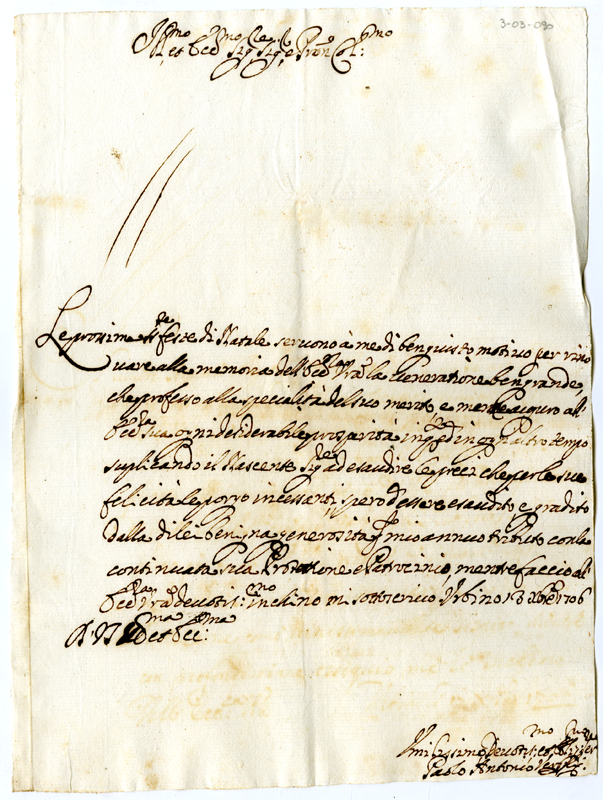 3-03-090
Ill.mo
et Ecc.mo Sig.re Sig.re e Pron Col:mo
Le prossime SS.te feste di Natale seruono à me di ben giusto motiuo per rino
uare alla memoria dell'Ecc.za Vra la Veneratione ben grande,
che professo alla specialità del suo merito, e mentre auguro all'
Ecc.za sua ogni desiderabile prosperità in q.te ed in ogn'altro tempo
suplicando il Nascente Sig.re ad esaudire le preci che per le sue
felicità le porgo incessanti, spero d'essere esaudito, e gradito
dalla di lei benigna generosità il mio annuo tributo con la
continuata sua Protettione e Patrocinio, mentre faccio all'
Ecc.za Vra deuotis:mo inchino mi sottoscriuo Vrbino 13 Xbre 1706
D. V. Ill.ma et Ecc:ma
Vmilissimo Deuotis:mo et
Paolo Antonio